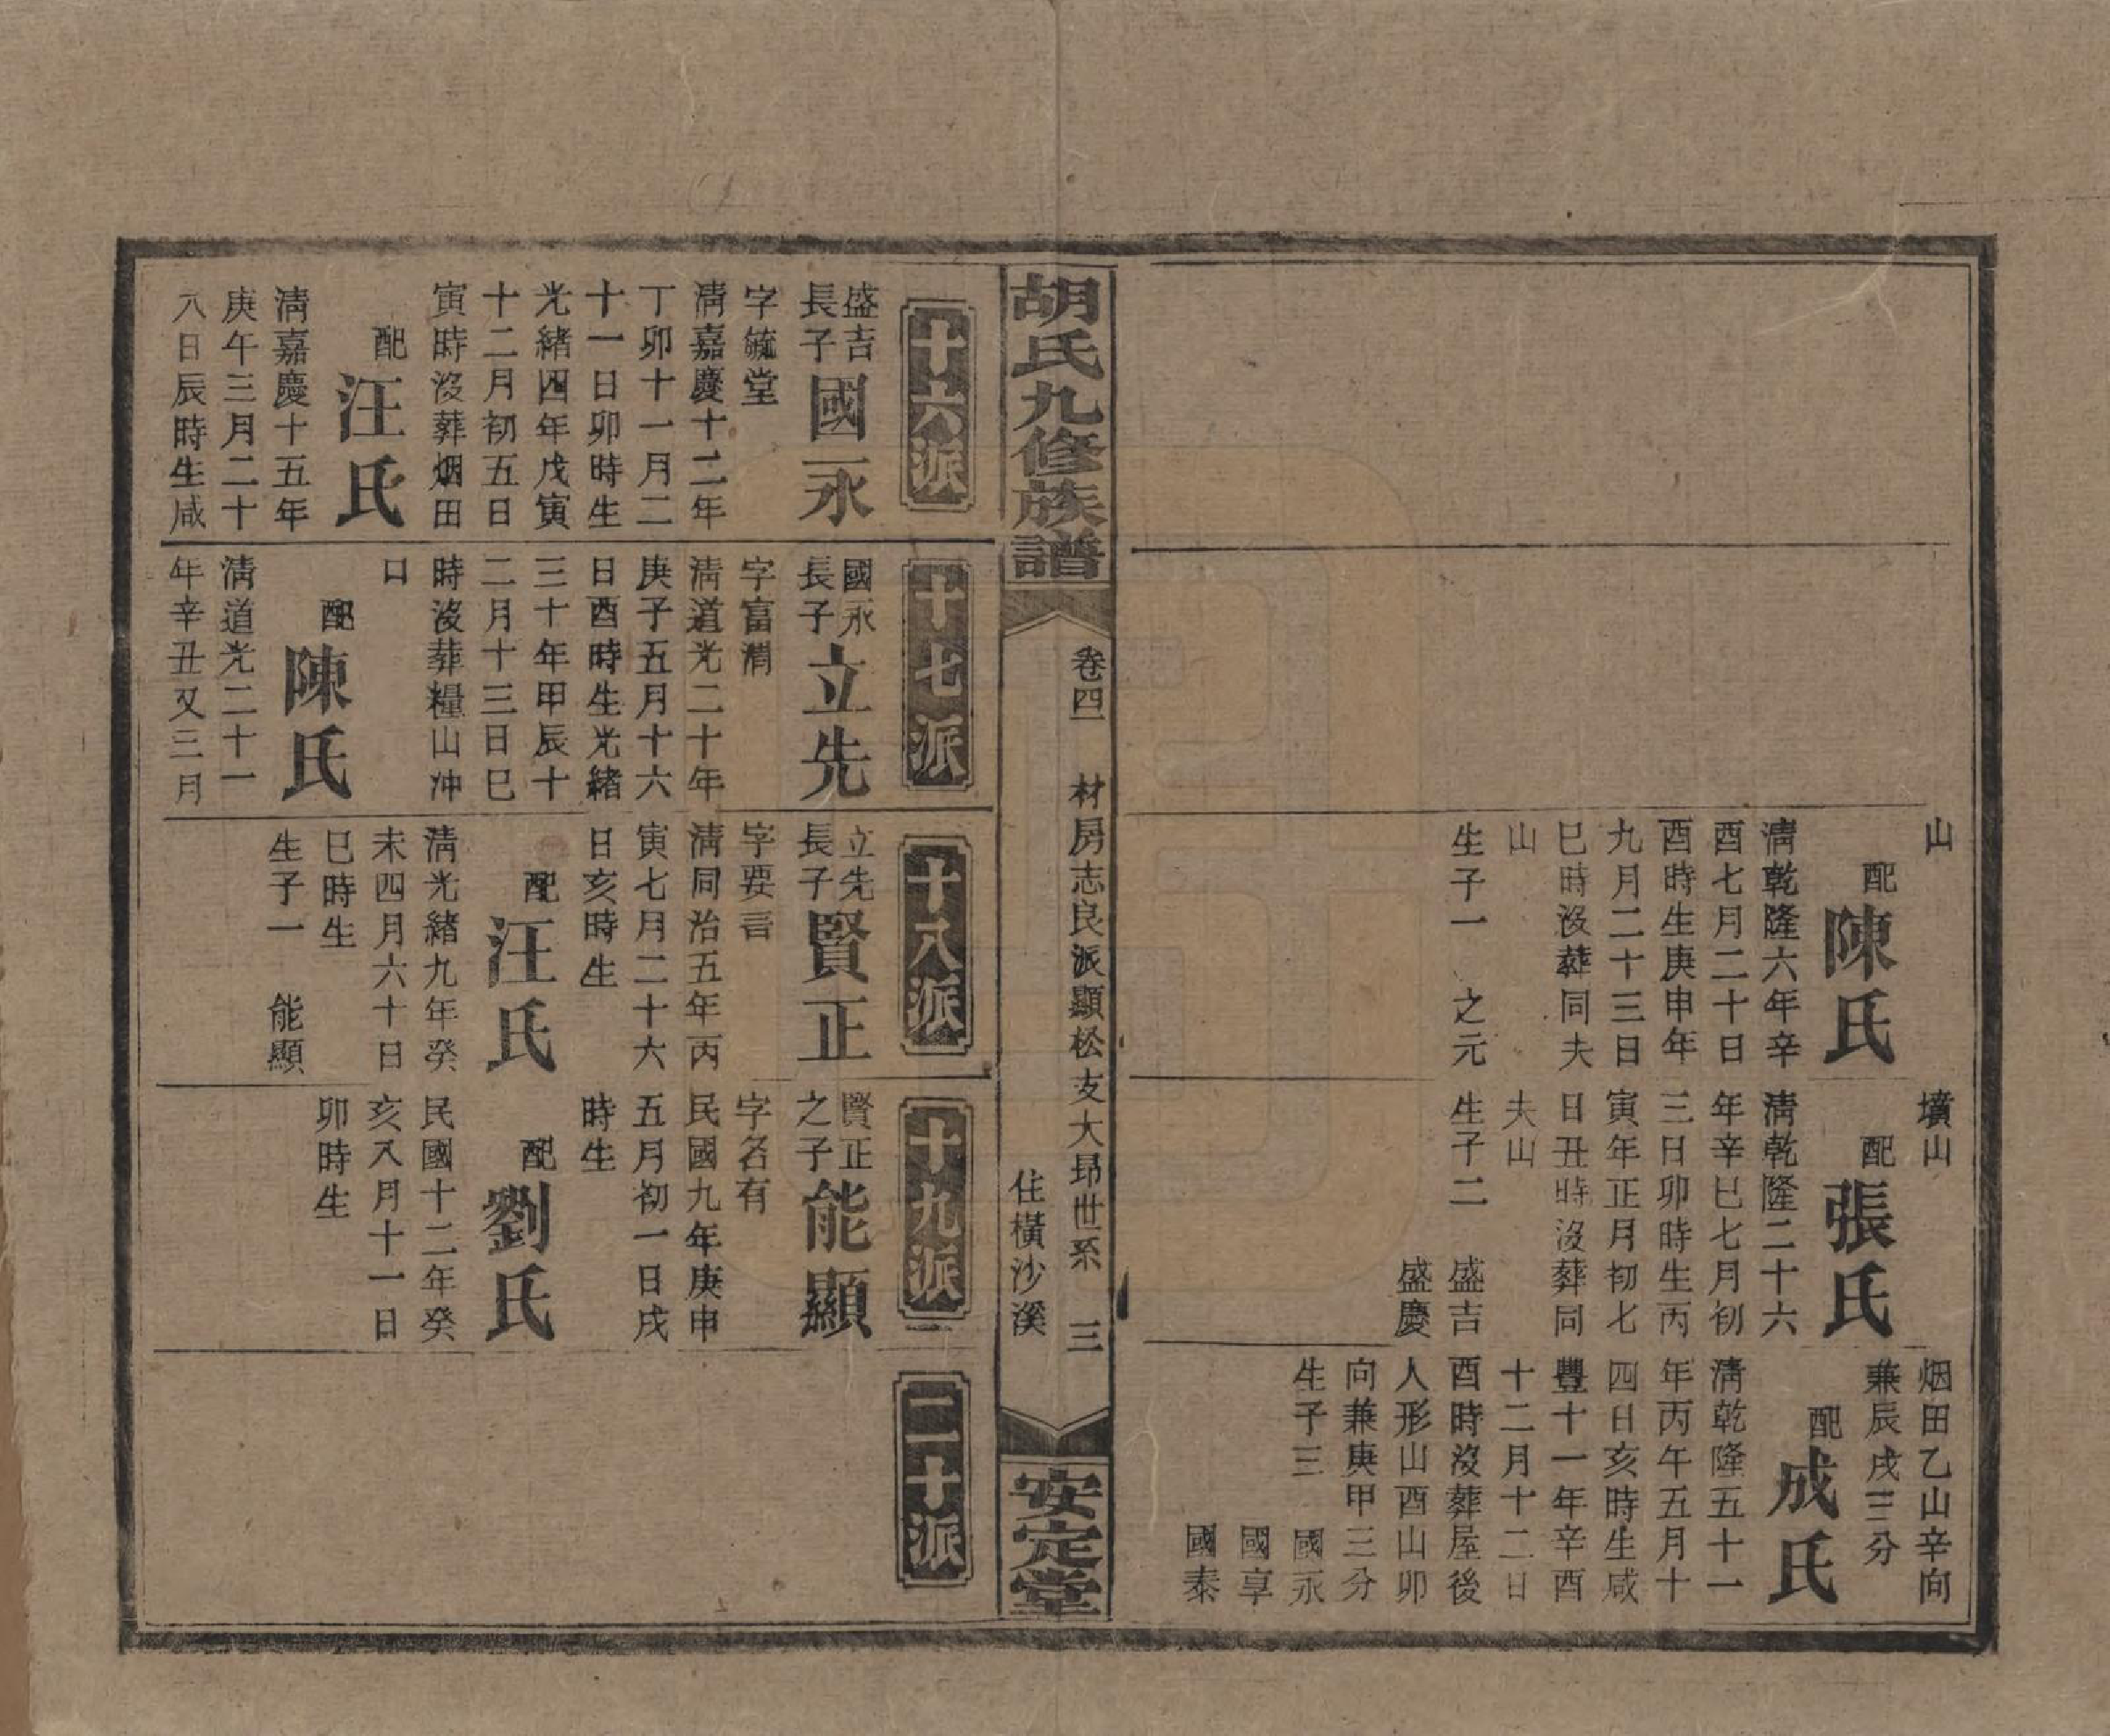 山
配
陳氏
清乾隆六年辛
酉七月二十日
酉時生庚申年
九月二十三日
巳時沒葬同夫
山
生子一　之元
墳山
配
張氏
清乾隆二十六
年辛巳七月初
三日卯時生丙
寅年正月初七
日丑時沒葬同
夫山
生子二　盛吉
盛慶
烟田乙山辛向
兼辰戌三分
配
成氏
清乾隆五十一
年丙午五月十
四日亥時生咸
豐十一年辛酉
十二月十二日
酉時沒葬屋後
人形山酉山卯
向兼庚甲三分
生子三　國永
國享
國泰
胡氏九修族譜
卷四　材房志良派顯松支大昻世系　三
住橫沙溪
安定堂
十六派
盛吉
長子
國永
字毓堂
清嘉慶十二年
丁卯十一月二
十一日卯時生
光緒四年戊寅
十二月初五日
寅時沒葬烟田
配
汪氏
清嘉慶十五年
庚午三月二十
八日辰時生咸
十七派
國永
長子
立先
字富潤
清道光二十年
庚子五月十六
日酉時生光緒
三十年甲辰十
二月十三日巳
時沒葬糧山冲
口
配
陳氏
清道光二十一
年辛丑又三月
十八派
立先
長子
賢正
字要言
清同治五年丙
寅七月二十六
日亥時生
配
汪氏
清光緒九年癸
未四月六十日
巳時生
生子一　能顯
十九派
賢正
之子
能顯
字名有
民國九年庚申
五月初一日戌
時生
配
劉氏
民國十二年癸
亥八月十一日
卯時生
二十派